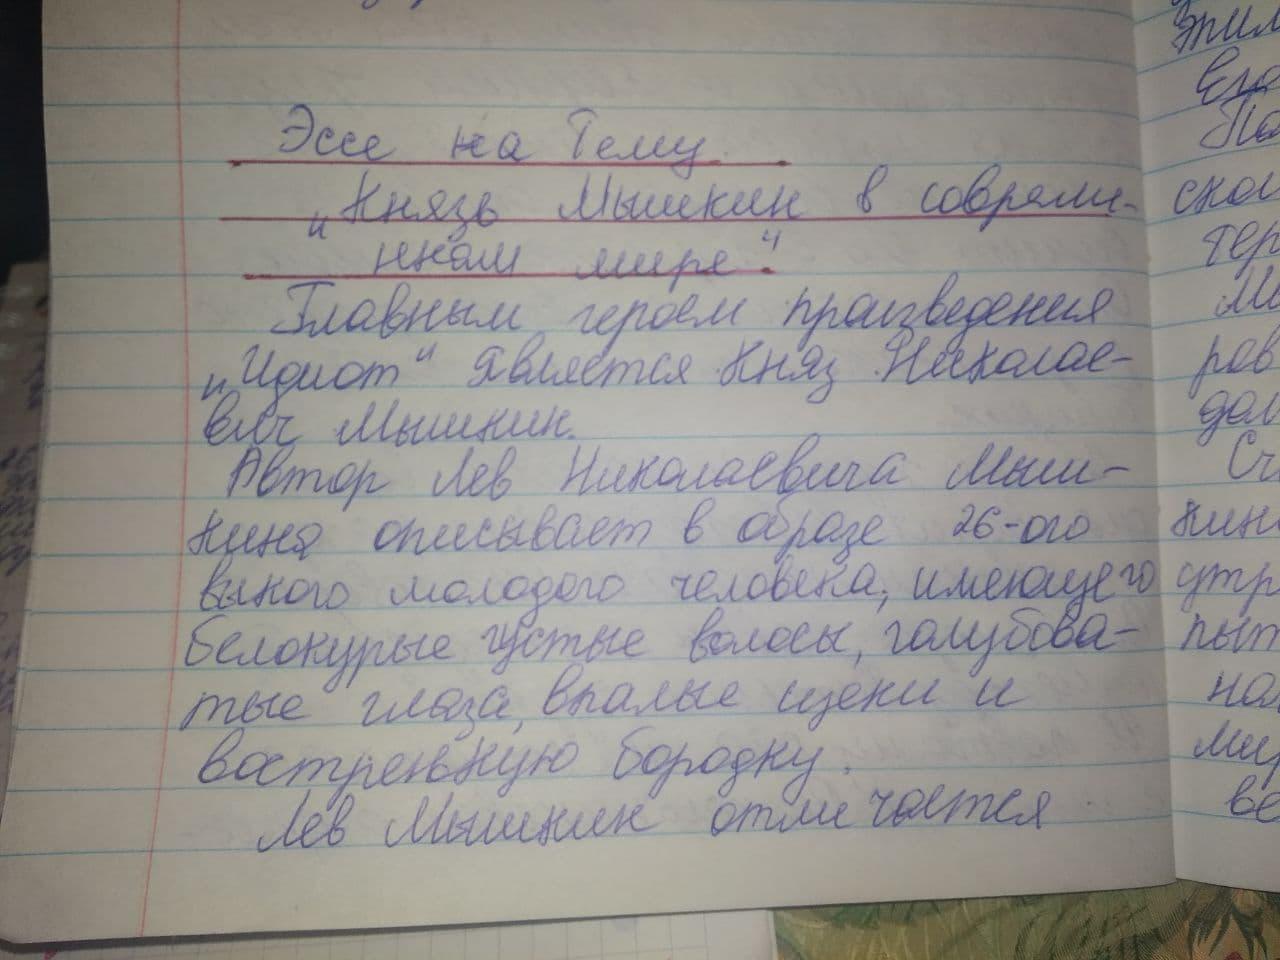 Эссе на Тему
"Князь Мышкин в совреми-
нном мире".
Главным героем произведения
"Идиот" является Княз Николае-
вич Мышкин.
Автор Лев Николаевича Мыш-
кина описывает в образе 26-ого
вького молодого человека, имеющего
белокурые густые волосы, голубова-
тые глаза, впалые щеки и
востренькую бородку.
Лев Мышкин отличается